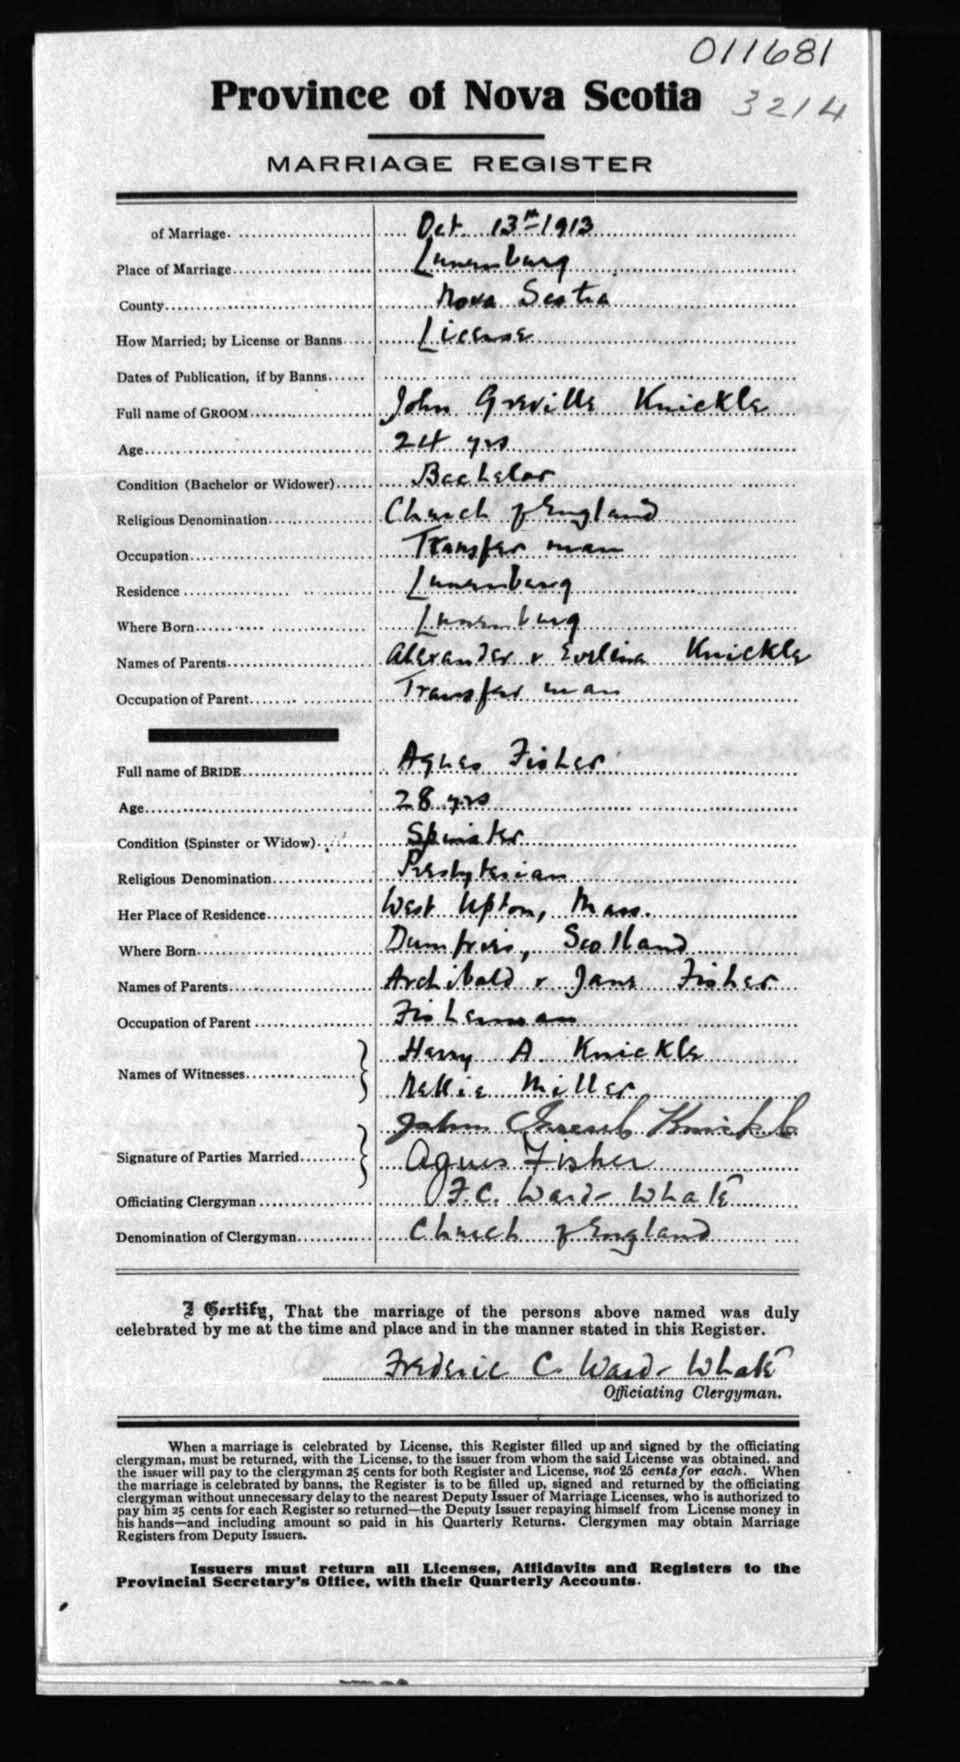 011681
Province of Nova Scotia 3214
MARRIAGE REGISTER
of Marriage. Oct. 13th 1913
Place of Marriage Lunenburg
County Nova Scotia
How Married; by License or Banns License
Dates of Publication, if by Banns
Full name of GROOM John Greville Knickle
Age 24 yrs
Condition (Bachelor or Widower) Bachelor
Religious Denomination Church of England
Occupation Transfer man
Residence Lunenburg
Where Born Lunenburg
Names of Parents Alexander & Evelina Knickle
Occupation of Parent Transfer man
Full name of BRIDE Agnes Fisher
Age 28 yrs
Condition (Spinster or Widow) Spinster
Religious Denomination Presbyterian
Her Place of Residence West Upton, Mass.
Where Born Dumfries, Scotland
Names of Parents Archibald & Jane Fisher
Occupation of Parent Fisherman
Names of Witnesses Harry A. Knickle
Nellie Miller
Signature of Parties Married John Knickle
Agnes Fisher
Officiating Clergyman F.C. Ward-Whate
Denomination of Clergyman Church of England
I Certify, That the marriage of the persons above named was duly
celebrated by me at the time and place and in the manner stated in this Register.
Frederic C. Ward-Whate
Officiating Clergyman.
When a marriage is celebrated by License, this Register filled up and signed by the officiating
clergyman, must be returned, with the License, to the issuer from whom the said License was obtained, and
the issuer will pay to the clergyman 25 cents for both Register and License, not 25 cents for each. When
the marriage is celebrated by banns, the Register is to be filled up, signed and returned by the officiating
clergyman without unnecessary delay to the nearest Deputy Issuer of Marriage Licenses, who is authorized to
pay him 25 cents for each Register so returned—the Deputy Issuer repaying himself from License money in
his hands—and including amount so paid in his Quarterly Returns. Clergymen may obtain Marriage
Registers from Deputy Issuers.
Issuers must return all Licenses, Affidavits and Registers to the
Provincial Secretary's Office, with their Quarterly Accounts.